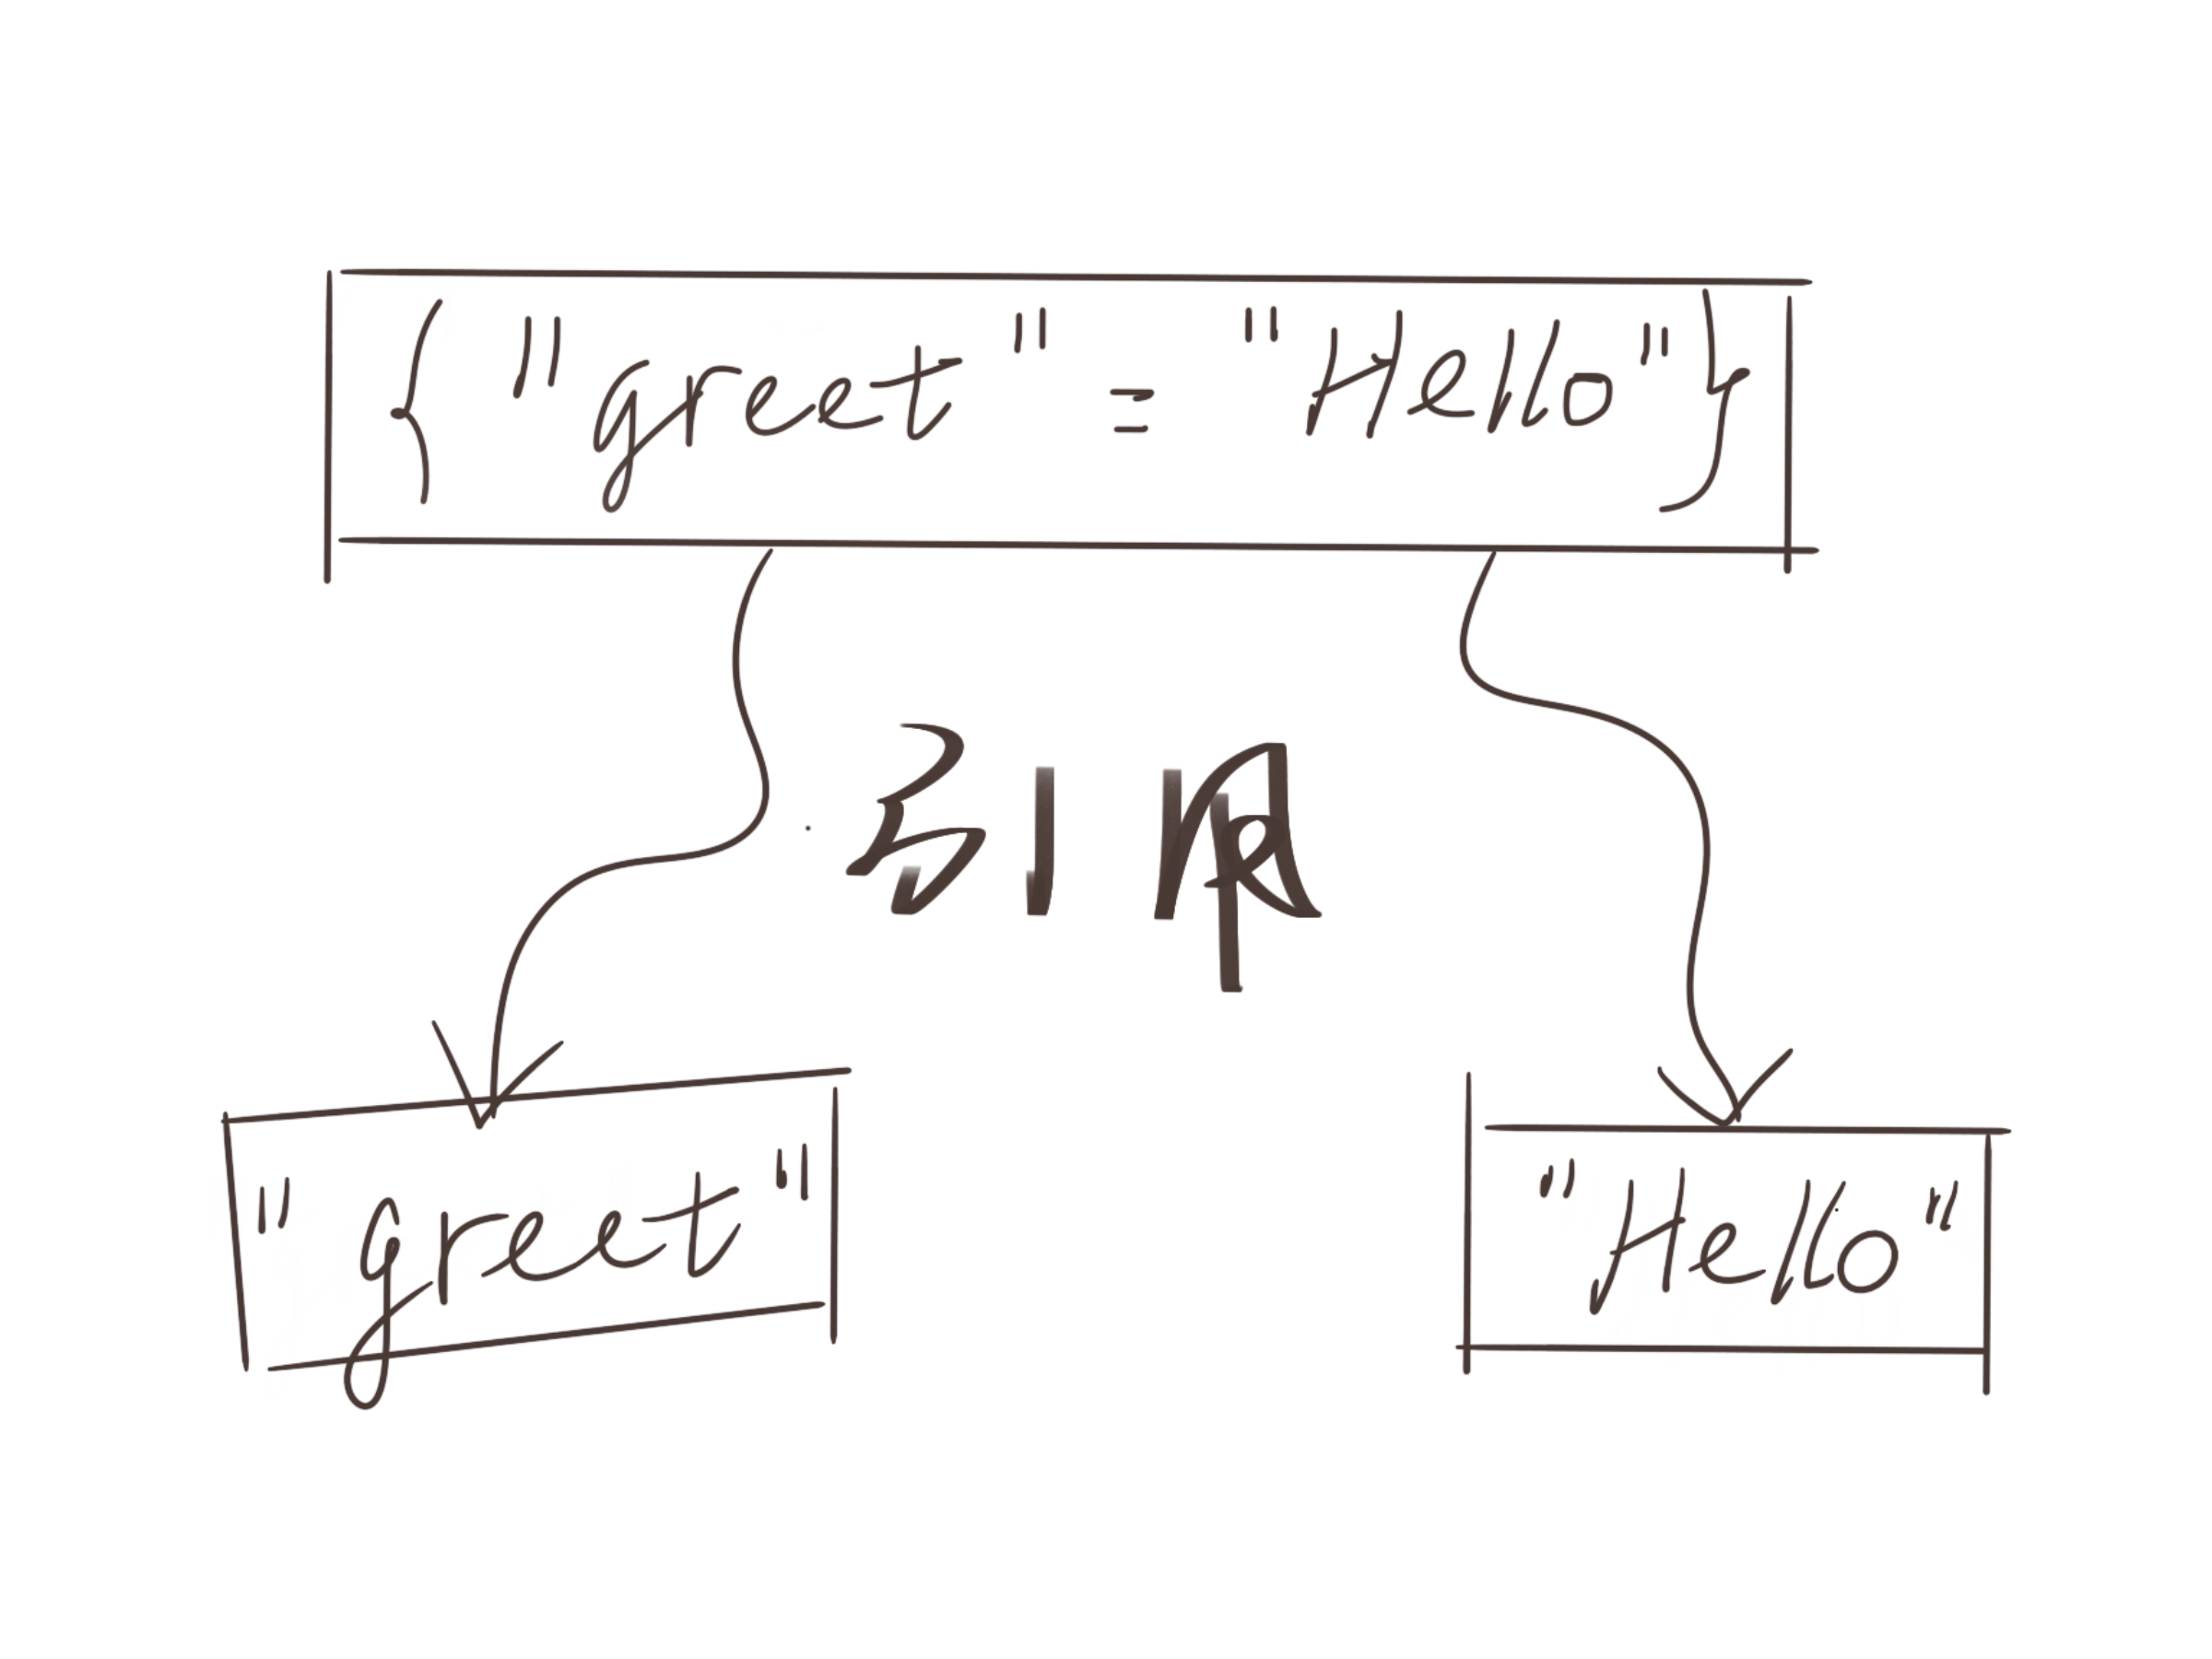 { "greet" = "Hello" }
引用
"greet"
"Hello"